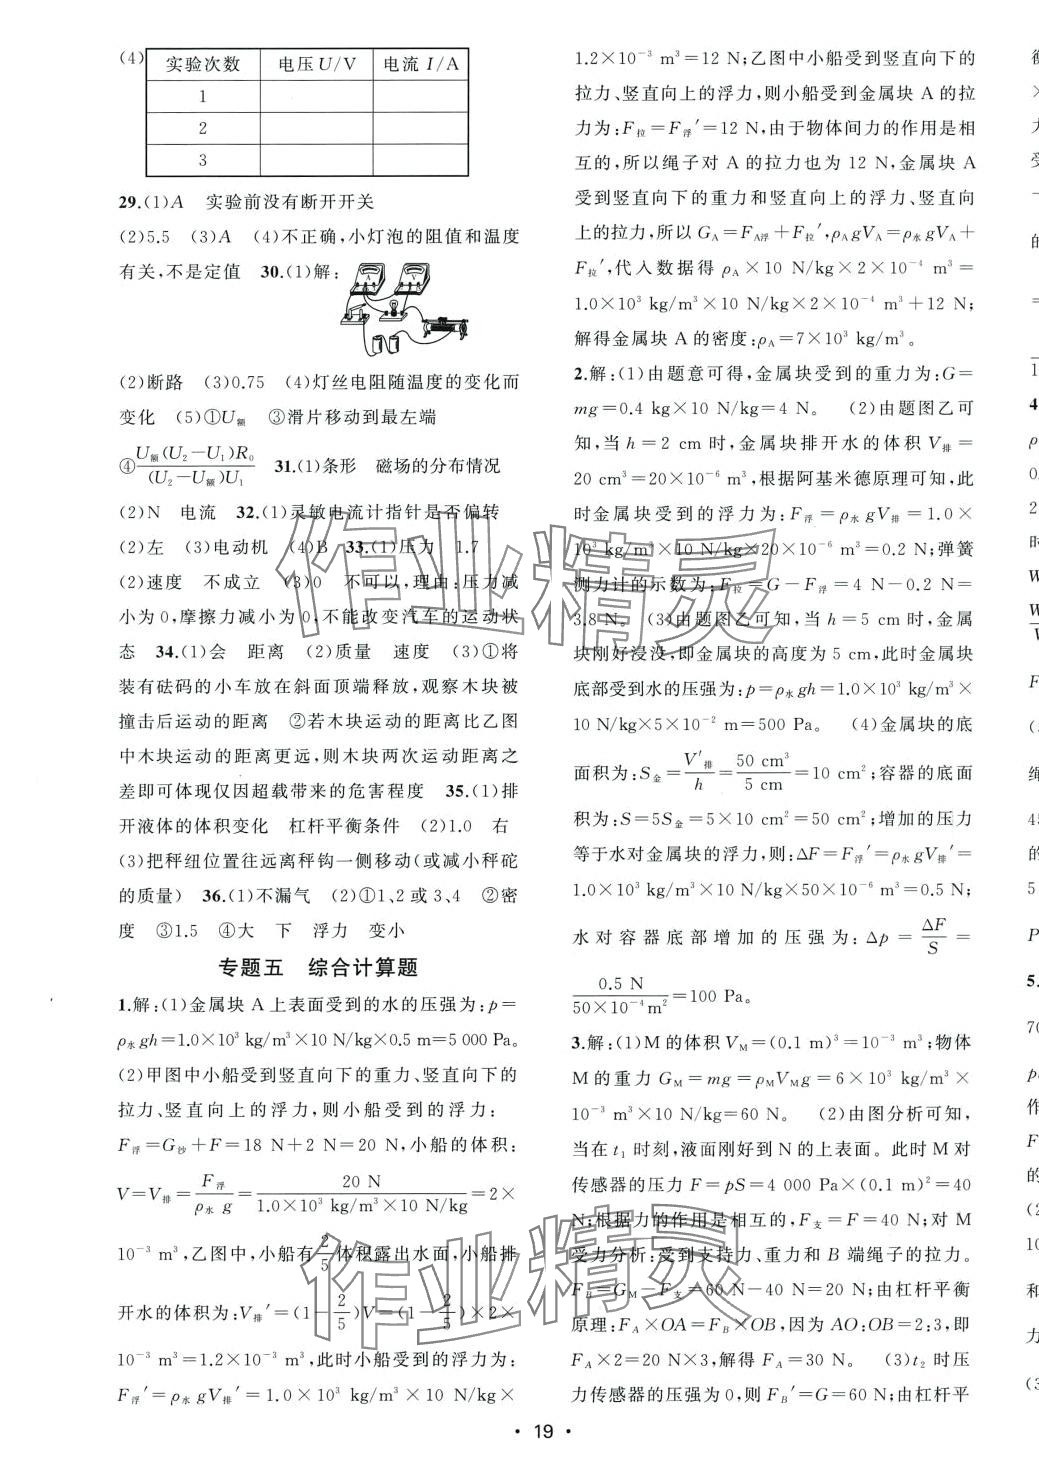 (4)
实验次数 电压U/V 电流I/A
1
2
3
29.(1)A 实验前没有断开开关
(2)5.5 (3)A (4)不正确,小灯泡的阻值和温度
有关,不是定值 30.(1)解:
(2)断路 (3)0.75 (4)灯丝电阻随温度的变化而
变化 (5)①U额 ③滑片移动到最左端
④U额(U₂-U₁)R₀/(U₂-U额)U₁ 31.(1)条形 磁场的分布情况
(2)N 电流 32.(1)灵敏电流计指针是否偏转
(2)左 (3)电动机 (4)B 33.(1)压力 1.7
(2)速度 不成立 (3)0 不可以,理由:压力减
小为0,摩擦力减小为0,不能改变汽车的运动状
态 34.(1)会 距离 (2)质量 速度 (3)①将
装有砝码的小车放在斜面顶端释放,观察木块被
撞击后运动的距离 ②若木块运动的距离比乙图
中木块运动的距离更远,则木块两次运动距离之
差即可体现仅因超载带来的危害程度 35.(1)排
开液体的体积变化 杠杆平衡条件 (2)1.0 右
(3)把秤纽位置往远离秤钩一侧移动(或减小秤砣
的质量) 36.(1)不漏气 (2)①1、2或3、4 ②密
度 ③1.5 ④大 下 浮力 变小
专题五 综合计算题
1.解:(1)金属块A上表面受到的水的压强为:p=
ρ水gh=1.0×10³ kg/m³×10 N/kg×0.5 m=5 000 Pa。
(2)甲图中小船受到竖直向下的重力、竖直向下的
拉力、竖直向上的浮力,则小船受到的浮力:
F浮=G沙+F=18 N+2 N=20 N,小船的体积:
V=V排=F浮/ρ水g=20 N/1.0×10³ kg/m³×10 N/kg=2×
10⁻³ m³,乙图中,小船有2/5体积露出水面,小船排
开水的体积为:V排′=(1-2/5)V=(1-2/5)×2×
10⁻³ m³=1.2×10⁻³ m³,此时小船受到的浮力为:
F浮′=ρ水gV排′=1.0×10³ kg/m³×10 N/kg×
1.2×10⁻³ m³=12 N;乙图中小船受到竖直向下的
拉力、竖直向上的浮力,则小船受到金属块A的拉
力为:F拉=F浮′=12 N,由于物体间力的作用是相
互的,所以绳子对A的拉力也为12 N,金属块A
受到竖直向下的重力和竖直向上的浮力、竖直向
上的拉力,所以G_A=F_A浮+F拉′,ρ_AgV_A=ρ水gV_A+
F拉′,代入数据得ρ_A×10 N/kg×2×10⁻⁴ m³=
1.0×10³ kg/m³×10 N/kg×2×10⁻⁴ m³+12 N;
解得金属块A的密度:ρ_A=7×10³ kg/m³。
2.解:(1)由题意可得,金属块受到的重力为:G=
mg=0.4 kg×10 N/kg=4 N。 (2)由题图乙可
知,当h=2 cm时,金属块排开水的体积V排=
20 cm³=20×10⁻⁶ m³,根据阿基米德原理可知,此
时金属块受到的浮力为:F浮=ρ水gV排=1.0×
10³ kg/m³×10 N/kg×20×10⁻⁶ m³=0.2 N;弹簧
测力计的示数为:F拉=G-F浮=4 N-0.2 N=
3.8 N。 (3)由题图乙可知,当h=5 cm时,金属
块刚好浸没,即金属块的高度为5 cm,此时金属块
底部受到水的压强为:p=ρ水gh=1.0×10³ kg/m³×
10 N/kg×5×10⁻² m=500 Pa。 (4)金属块的底
面积为:S金=V′排/h=50 cm³/5 cm=10 cm²;容器的底面
积为:S=5S金=5×10 cm²=50 cm²;增加的压力
等于水对金属块的浮力,则:ΔF=F浮′=ρ水gV排′=
1.0×10³ kg/m³×10 N/kg×50×10⁻⁶ m³=0.5 N;
水对容器底部增加的压强为:Δp=ΔF/S=
0.5 N/50×10⁻⁴ m²=100 Pa。
3.解:(1)M的体积V_M=(0.1 m)³=10⁻³ m³;物体
M的重力G_M=mg=ρ_MV_Mg=6×10³ kg/m³×
10⁻³ m³×10 N/kg=60 N。 (2)由图分析可知,
当在t₁时刻,液面刚好到N的上表面。此时M对
传感器的压力F=pS=4 000 Pa×(0.1 m)²=40
N;根据力的作用是相互的,F支=F=40 N;对M
受力分析:受到支持力、重力和B端绳子的拉力。
F_B=G_M-F支=60 N-40 N=20 N;由杠杆平衡
原理:F_A×OA=F_B×OB,因为AO:OB=2:3,即
F_A×2=20 N×3,解得F_A=30 N。 (3)t₂时压
力传感器的压强为0,则F_B′=G=60 N;由杠杆平
作业精灵
作业精灵
• 19 •